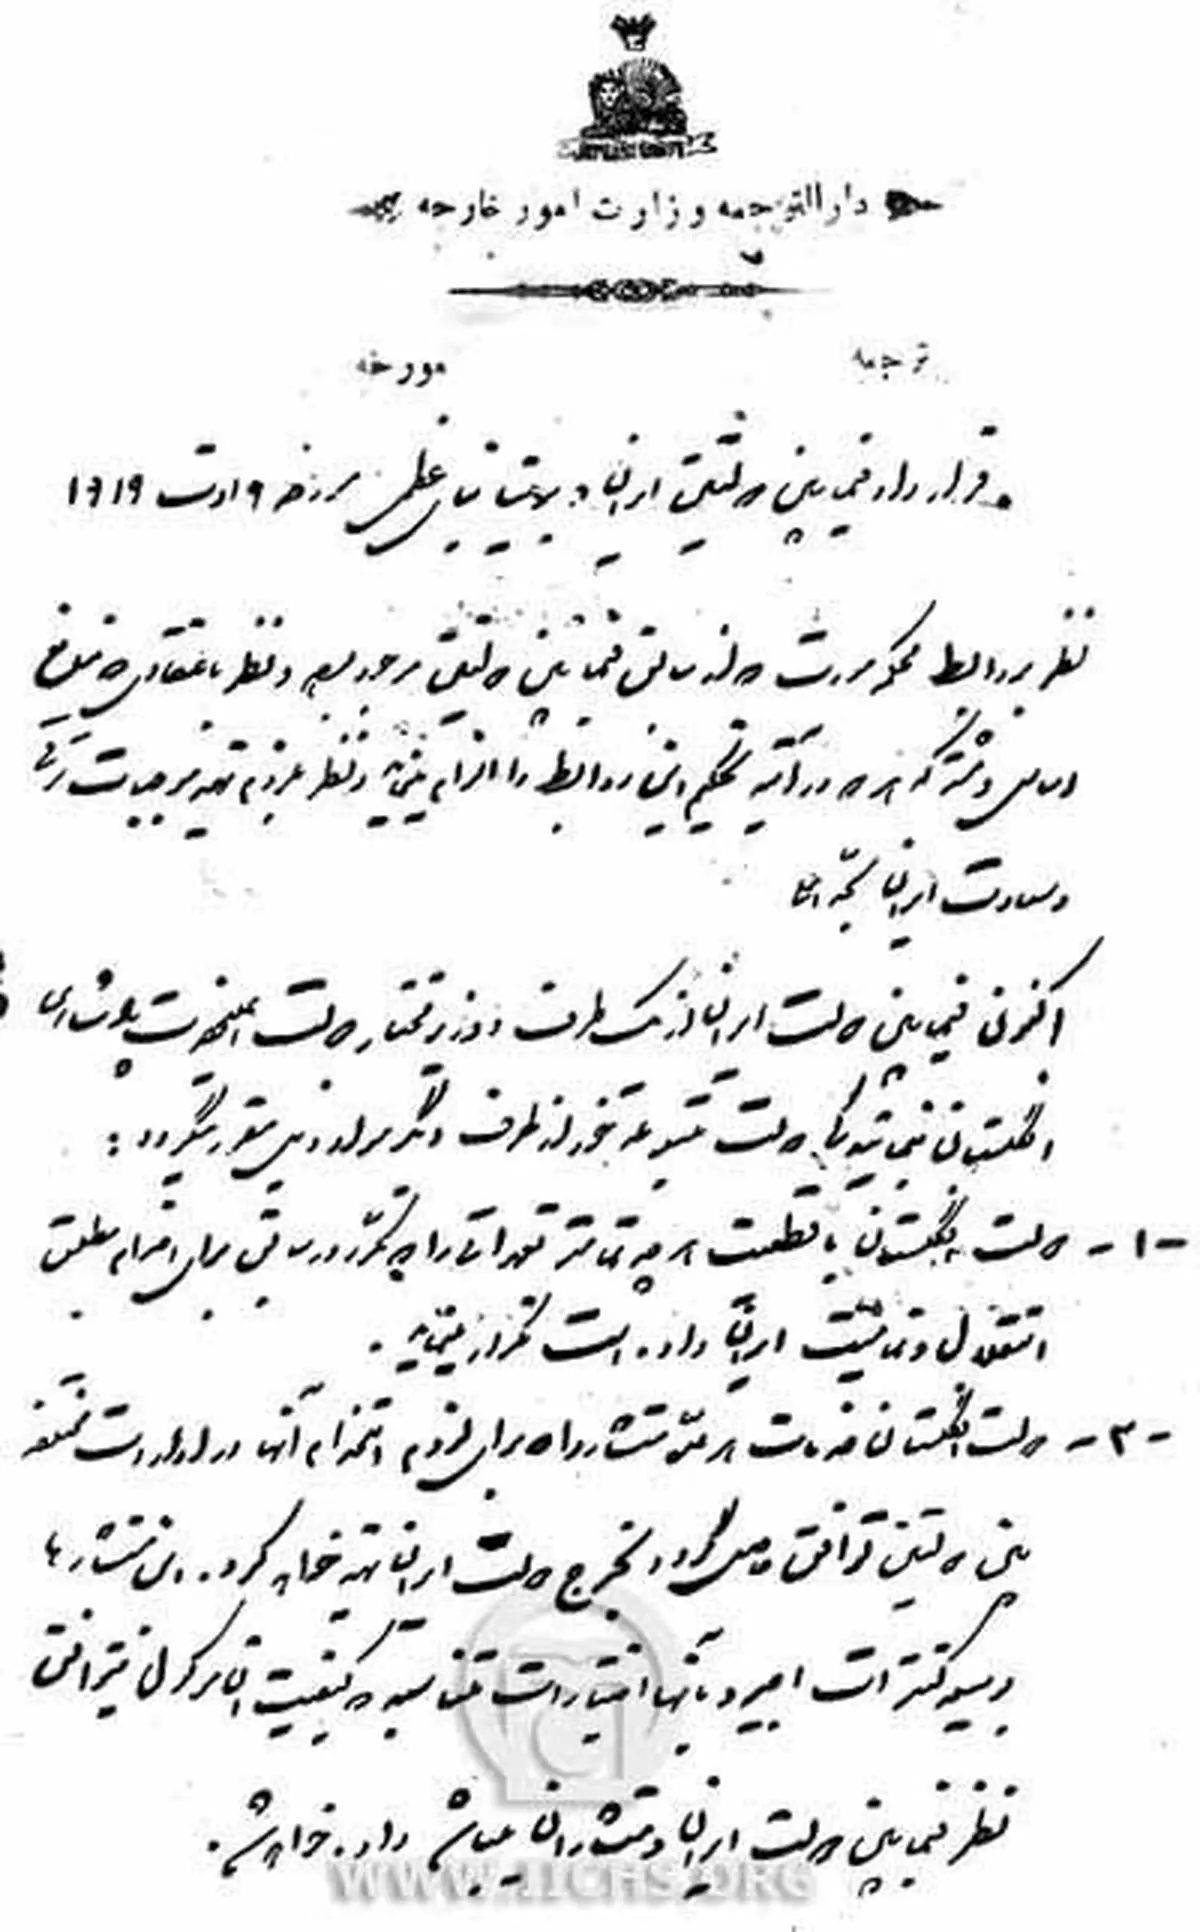 دارالترجمه وزارت امور خارجه
ترجمه
مورخه
قرارداد فیمابین دولتین ایران و بریتانیای عظمی مورخه ۹ اوت ۱۹۱۹
نظر بروابط محکمه مودت که از سابق فیمابین دولتین موجود بوده و نظر باعتقاد باینکه منافع
اساسی و مشترکه هر دو در آتیه تحکیم این روابط را الزام مینماید و نظر بلزوم تهیه موجبات ترقی
و سعادت ایران بحد اعلا
اکنون فیمابین دولت ایران از یک طرف و وزیر مختار دولت اعلیحضرت پادشاهی
انگلستان بنمایندگی دولت متبوعه خود از طرف دیگر مواد ذیل مقرر میگردد:
-۱- دولت انگلستان با قطعیت هر چه تمامتر تعهداتی را که مکرر در سابق برای احترام مطلق
استقلال و تمامیت ایران داده است تکرار مینماید.
-۲- دولت انگلستان خدمات هر عده مستشار را که برای لزوم استخدام آنها در ادارات مختلفه
بین دولتین توافق حاصل گردد بخرج دولت ایران تهیه خواهد کرد. این مستشارها
با کنترات اجیر و بآنها اختیارات متناسبه که کیفیت آن مرکول بتوافق
نظر فیمابین دولت ایران و مستشاران میباشد داده خواهد شد.
WWW.IICHS.ORG